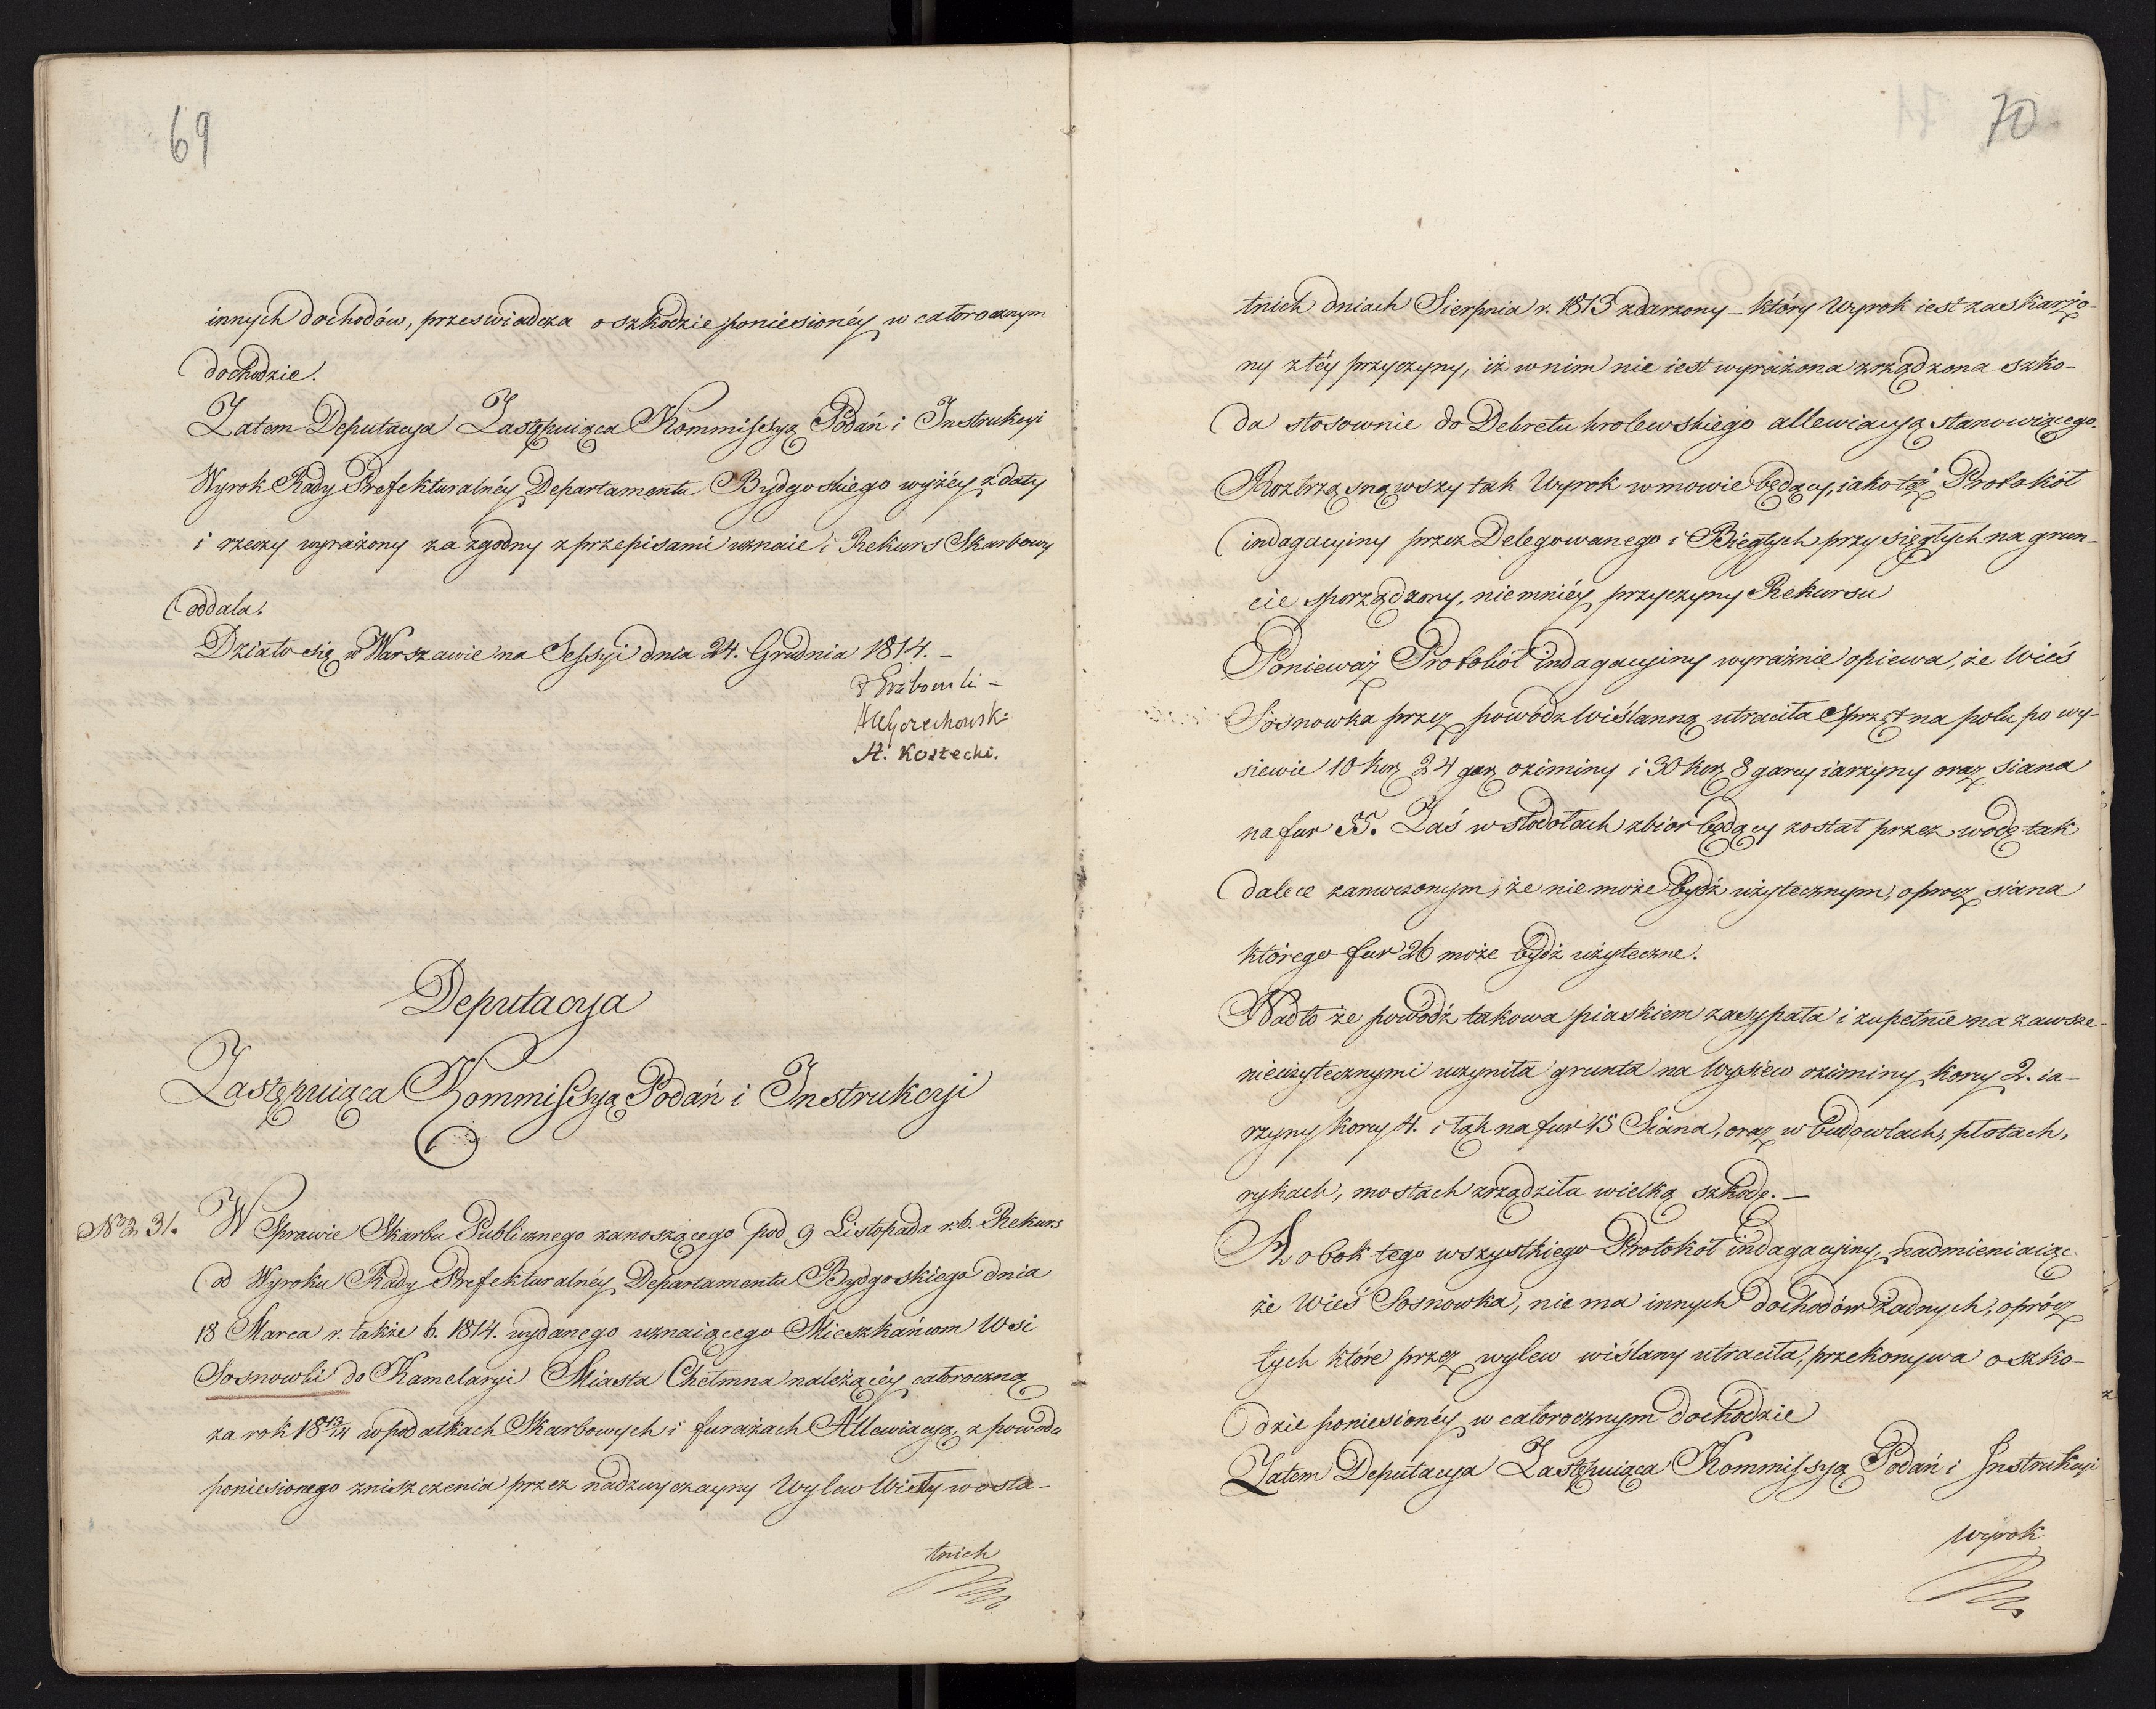 69
innych dochodów, przeswiadcza o szkodzie poniesionéy w całorocznym
dochodzie.
Zatem Deputacya Zastępuiąca Kommissyą Podań i Instrukcyi
Wyrok Rady Prefekturalnéy Departamentu Bydgoskiego wyżéy z daty
i rzeczy wyrażony za zgodny z przepisami uznaie i Rekurs Skarbowy
oddala.
Działo się w Warszawie na Sessyi dnia 24. Grudnia 1814. –
A. Kostecki.
Deputacya
Zastępuiąca Kommissyą Podań i Instrukcyi
No 31. W Sprawie Skarbu Publicznego zanoszącego pod 9 Listopada r. b. Rekurs
od Wyroku Rady Prefekturalnéy Departamentu Bydgoskiego dnia
18 Marca r. także b. 1814. wydanego uznaiącego Mieszkańcom Wsi
Sosnowki do Kamelaryi Miasta Chełmna należącéy całoroczną
za rok 18 13/14 w podatkach Skarbowych i furażach Allewiacyą, z powodu
poniesionego zniszczenia przez nadzwyczayny Wylew Wisły w osta-
tnich
70
tnich dniach Sierpnia r. 1813 zdarzony – który Wyrok iest zaskarżo-
ny z téy przyczyny, iż w nim nie iest wyrażona zrządzona szko-
da stosownie do Dekretu krolewskiego allewiacyą stanowiącego.
Roztrząsnąwszy tak Wyrok w mowie będący, iako też Protokół
indagacyiny przez Delegowanego i Biegłych przysięgłych na grun-
cie sporządzony, niemniéy przyczyny Rekursu
Ponieważ Protokół indagacyiny wyraźnie opiewa, że Wieś
Sosnowka przez powodz wiślanną utraciła Sprzęt na polu po wy-
siewie 10 korz 24 garz oziminy i 30 korz 8 garcy iarzyny oraz siana
na fur 55. Zaś w stodołach zbior będący został przez wodę tak
dalece zamulonym, że nie może bydź użytecznym, oprocz siana
którego fur 26 może bydź użyteczne.
Nadto że powódź takowa piaskiem zasypała i zupełnie na zawsze
nieużytecznymi uczyniła grunta na Wysiew oziminy korcy 2. ia-
rzyny korcy 4. i łąk na fur 15 Siana, oraz w budowlach, płotach,
rykach, mostach zrządziła wielką szkodę. –
A obok tego wszystkiego Protokół indagacyiny, nadmieniaiąc
że Wieś Sosnowka, nie ma innych dochodów żadnych, oprócz
tych które przez wylew wiślany utraciła, przekonywa o szko-
dzie poniesionéy w całorocznym dochodzie
Zatem Deputacya Zastępuiąca Kommissyą Podań i Instrukcyi
Wyrok